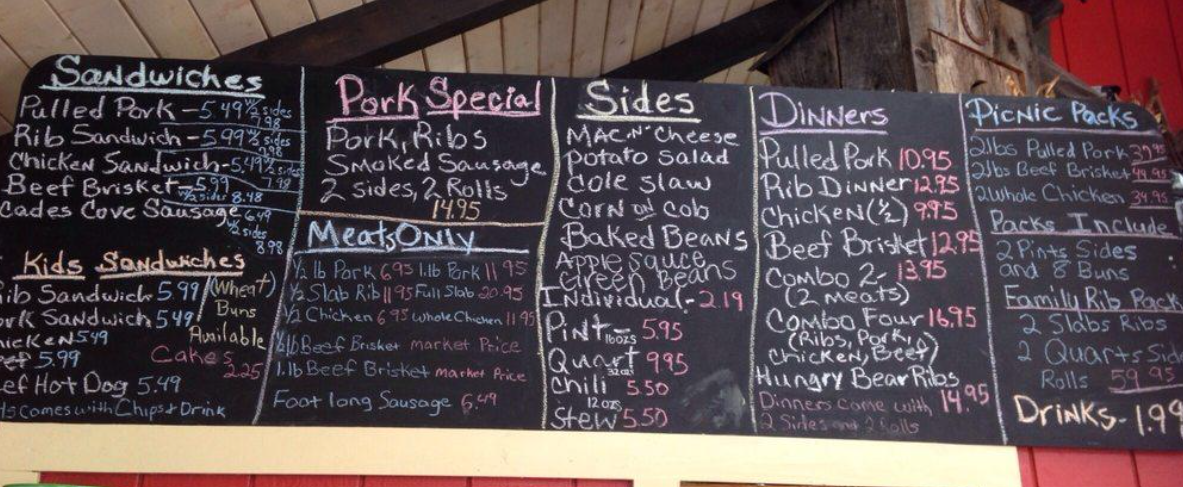 Sandwiches
Pulled Pork - 5.49 w/2 sides
7.98
Rib Sandwich - 5.99 w/2 sides
Chicken Sandwich - 5.49 1/2 sides
7.98
Beef Brisket - 5.99
1/2 sides 8.48
Cades Cove Sausage 6.49
1/2 sides
8.98
Kids Sandwiches
Rib Sandwich 5.99
Pork Sandwich 5.49
Chicken 5.49
5.99
Hot Dog 5.49
Comes with Chips & Drink
(Wheat)
Buns
Available
Cakes
2.25
Pork Special
Pork, Ribs
Smoked Sausage
2 sides, 2 Rolls
14.95
Meats Only
1/2 lb Pork 6.95 1.lb Pork 11.95
1/2 Slab Rib 11.95 Full Slab 20.95
1/2 Chicken 6.95 Whole Chicken 11.95
1/2 lb Beef Brisket market Price
1.lb Beef Brisket market Price
Foot long Sausage 6.49
Sides
MAC 'N' Cheese
Potato Salad
Cole Slaw
Corn on Cob
Baked Beans
Apple Sauce
Green Beans
Individual - 2.19
Pint - 5.95
16ozs
Quart 9.95
32ozs
Chili 5.50
12ozs
Stew 5.50
Dinners
Pulled Pork 10.95
Rib Dinner 12.95
Chicken (1/2) 9.95
Beef Brisket 12.95
Combo 2 - 13.95
(2 meats)
Combo Four 16.95
(Ribs, Pork,
Chicken, Beef)
Hungry Bear Ribs
14.95
Dinners Come with
2 Sides and 2 Rolls
Picnic Packs
2lbs Pulled Pork 39.95
2lbs Beef Brisket 49.95
2 Whole Chicken 34.95
Packs Include
2 Pints Sides
and 8 Buns
Family Rib Pack
2 Slabs Ribs
2 Quarts Side
Rolls 59.95
Drinks - 1.99